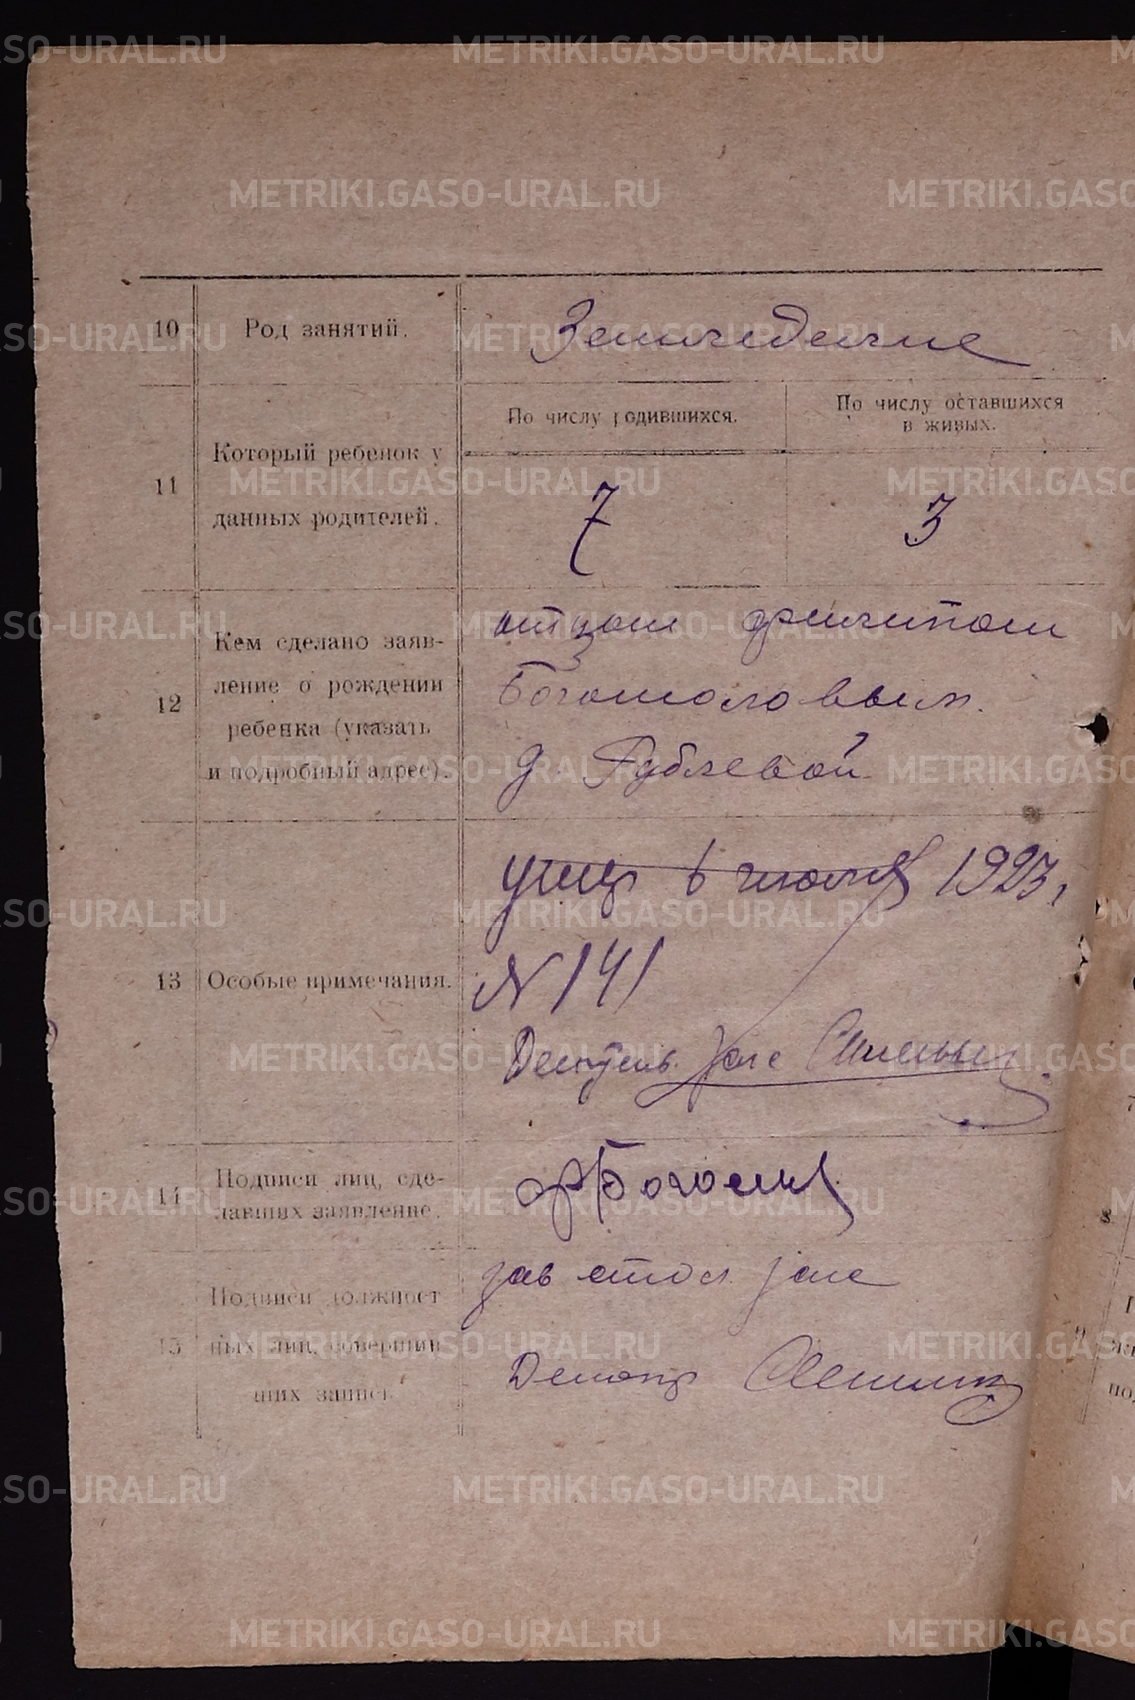 METRIKI.GASO-URAL.RU
10 Род занятий. Земледелие
11 Который ребенок у данных родителей.
По числу родившихся.
По числу оставшихся
в живых.
7
3
12
Кем сделано заяв-
ление о рождении
ребенка (указать
и подробный адрес).
отцом Филипом
Богомоловым.
д. Рублевой
13 Особые примечания.
умер 6 июля 1923 г
N 141
загс
14
Подписи лиц, сде-
лавших заявление.
ФБогомол
15
Подписи должност
ных лиц, соверши
ших запись
зав стол загс